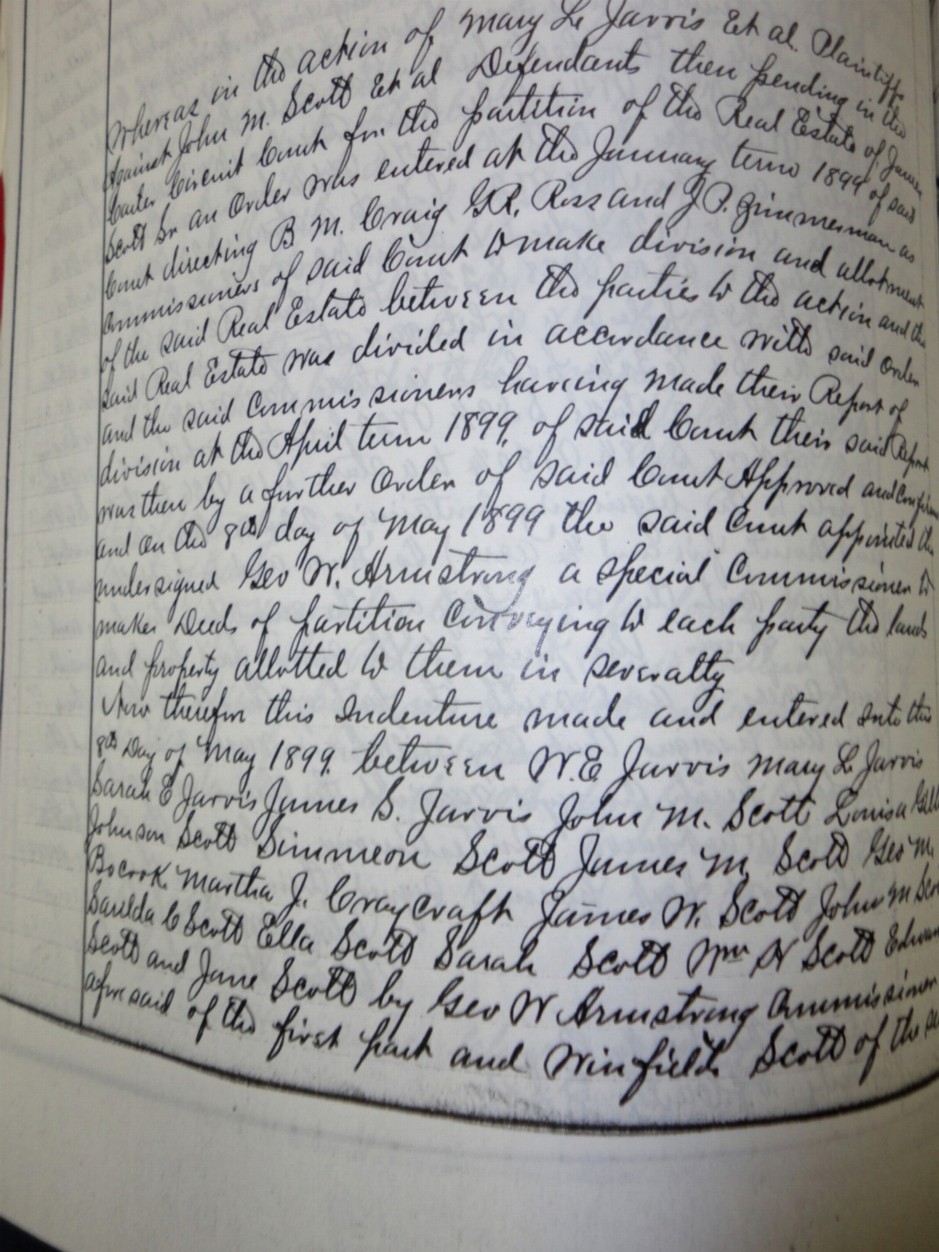 Whereas in the action of Mary L Jarvis Et al. Plaintiffs
Against John M. Scott Et al Defendants then pending in the
Carter Circuit Court for the partition of the Real Estate of James
Scott Sr an Order was entered at the January term 1899 of said
Court directing B M. Craig G.R. Ross and J P. Zimmerman as
Commissioners of said Court to make division and allotment
of the said Real Estate between the parties to the action and the
said Real Estate was divided in accordance with said Order
and the said Commissioners having made their Report of
division at the April term 1899, of said Court their said Report
was then by a further Order of said Court Approved and Confirmed
and on the 8th day of May 1899 the said Court appointed the
undersigned Geo W. Armstrong a special Commissioner to
make Deeds of partition Conveying to each party the lands
and property allotted to them in severalty
Now therefore this Indenture made and entered into this
8th Day of May 1899. between W.E Jarvis Mary L Jarvis
Sarah E Jarvis James S. Jarvis John M. Scott Louisa
Johnson Scott Simmeon Scott James M, Scott Geo M.
Bocook Martha J. Craycraft James W. Scott John M Scott
Sarilda C Scott Ella Scott Sarah Scott Wm H Scott Edward
Scott and Jane Scott by Geo W Armstrong Commissioner
aforesaid of the first part and Winfield Scott of the